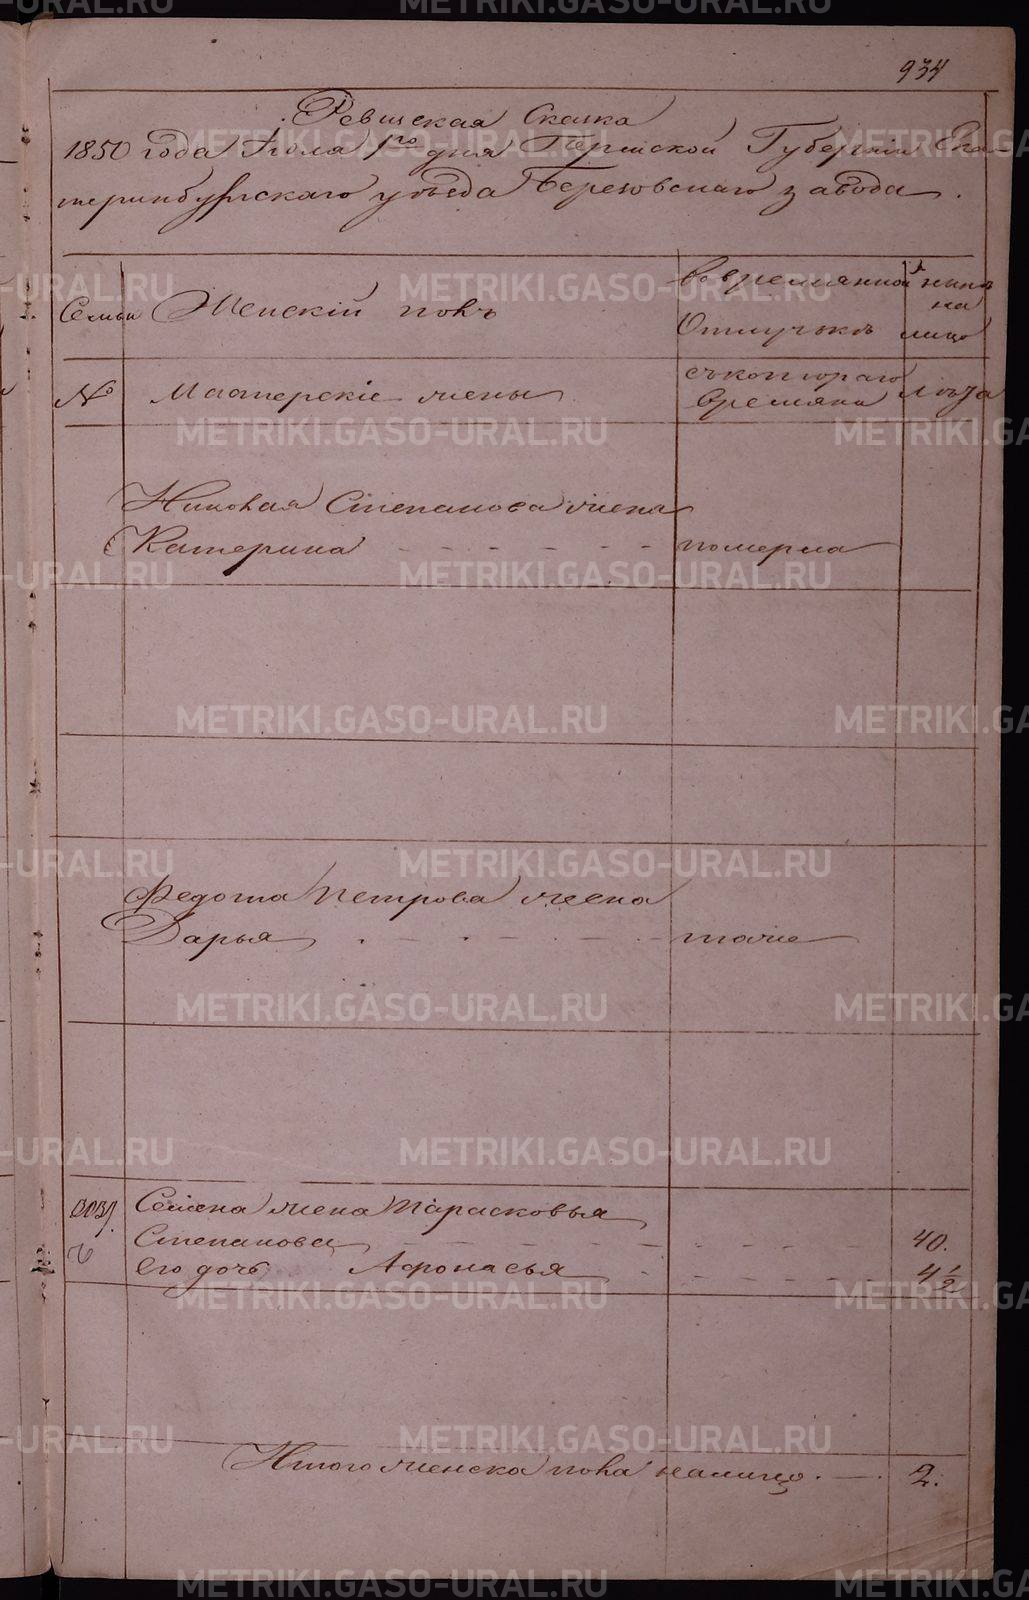 934
Ревизская Сказка
1850 года Июля 1го дня Пермской Губернии Ека
теринбургскаго уѣзда Березовскаго завода.
Семьи
Женскій полъ
Во временной
Отлучькѣ
нынѣ
на
лицо
№
Мастерскіе жены
съ котораго
времяни
лѣта
Степанова жена
Катерина
померла
Федота Петрова жена
Дарья
тоже
Семена жена Парасковья
Степанова 40.
Его дочь Афонасья 4 1/2
Итого женска пола налицо 2.
METRIKI.GASO-URAL.RU